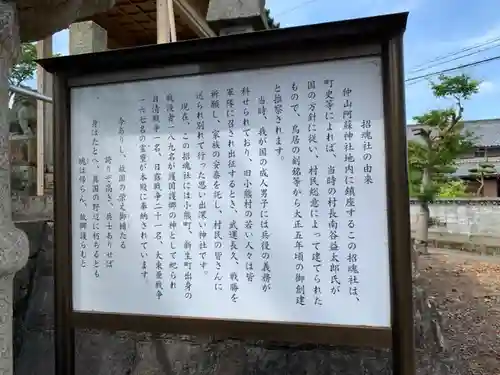 招魂社の由来
仲山阿蘇神社地内に鎮座するこの招魂社は、
町史等によれば、当時の村長南谷益太郎氏が
国の方針に従い、村民総意によって建てられた
もので、鳥居の創銘等から大正五年頃の御創建
と推察されます。
当時、我が国の成人男子には兵役の義務が
科せられており、旧小熊村の若い人々は皆
軍隊に召され出征するとき、武運長久、戦勝を
祈願し、家族の安泰を託し、村民の皆さんに
送られ別れて行った思い出深い神社です。
現在、この招魂社には小熊町、新生町出身の
戦没者一八九名が護国護郷の神として祀られ
日清戦争一名、日露戦争二十一名、大東亜戦争
一六七名の霊璽が本殿に奉納されています。
今ありし、故国の栄え御捕たる
誇りぞ高き、兵士ありせば
身はたとへ、異国の野辺に朽ちるとも
魂は帰らん、故郷の護らむと